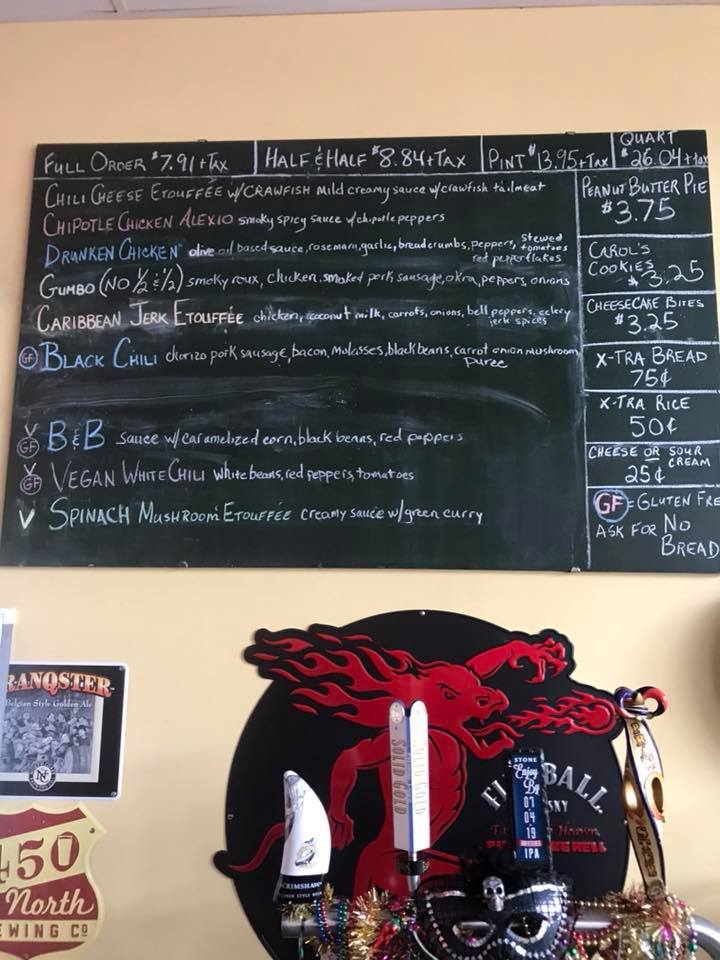 FULL ORDER $7.91+TAX
HALF & HALF $8.84+TAX
PINT $13.95+TAX
QUART
$26.04+tax
CHILI CHEESE ETOUFFÉE W/CRAWFISH mild creamy sauce w/crawfish tailmeat
CHIPOTLE CHICKEN ALEXIO smoky spicy sauce w/chipotle peppers
DRUNKEN CHICKEN olive oil based sauce, rosemary, garlic, breadcrumbs, peppers, stewed tomatoes
red pepper flakes
GUMBO (NO 1/2 & 1/2) smoky roux, chicken, smoked pork sausage, okra, peppers, onions
CARIBBEAN JERK ETOUFFÉE chicken, coconut milk, carrots, onions, bell peppers, celery
jerk spices
GF BLACK CHILI chorizo pork sausage, bacon, molasses, black beans, carrot onion mushroom
puree
V GF B&B sauce w/caramelized corn, black beans, red peppers
V GF VEGAN WHITE CHILI white beans, red peppers, tomatoes
V SPINACH MUSHROOM ETOUFFÉE creamy sauce w/green curry
PEANUT BUTTER PIE
$3.75
CAROL'S
COOKIES $3.25
CHEESECAKE BITES
$3.25
X-TRA BREAD
75¢
X-TRA RICE
50¢
CHEESE OR SOUR
CREAM
25¢
GF = GLUTEN FRE
ASK FOR NO
BREAD
RANQSTER
Belgian Style Golden Ale
N
450
North
EWING CO
SOLID GOLD
SOLID GOLD
STONE
Enjoy
By
07
04
19
IPA
BALL
SKY
HELL
CRIMSHAW